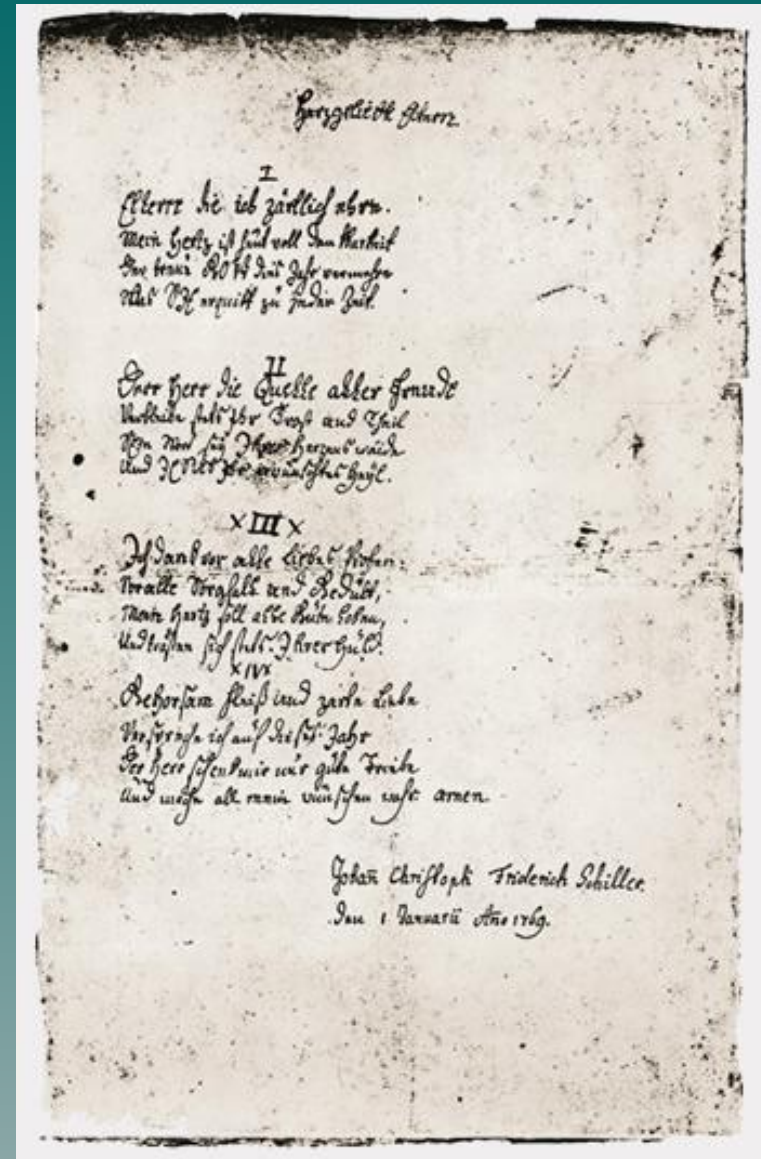 Herzgeliebte Eltern
I
Eltern die ich zärtlich ehre.
Mein Hertz ist heut voll Danckbarkeit
Der treue GOtt dies Jahr vermehre
Was SIE erquikt zu jeder Zeit.
II
Der Herr die Quelle aller Freude
Verbleibe stets Ihr Trost und Theil
Sein Wort sey Ihres Herzens waide
Und JESUS Ihr erwünschtes Heyl.
× III ×
Ich dank vor alle Liebes Proben
Vor alle Sorgfalt und Gedult,
Mein Hertz soll alle Güte loben,
Und trösten sich stets Ihrer Huld.
× IV ×
Gehorsam Fleiß und zarte Liebe
Verspreche ich auf dieses Jahr
Der Herr schenk mir nur gute Triebe
Und mache all mein wünschen wahr. amen
Johañ Christoph Friderich Schiller
Den 1 Januarii Año 1769.